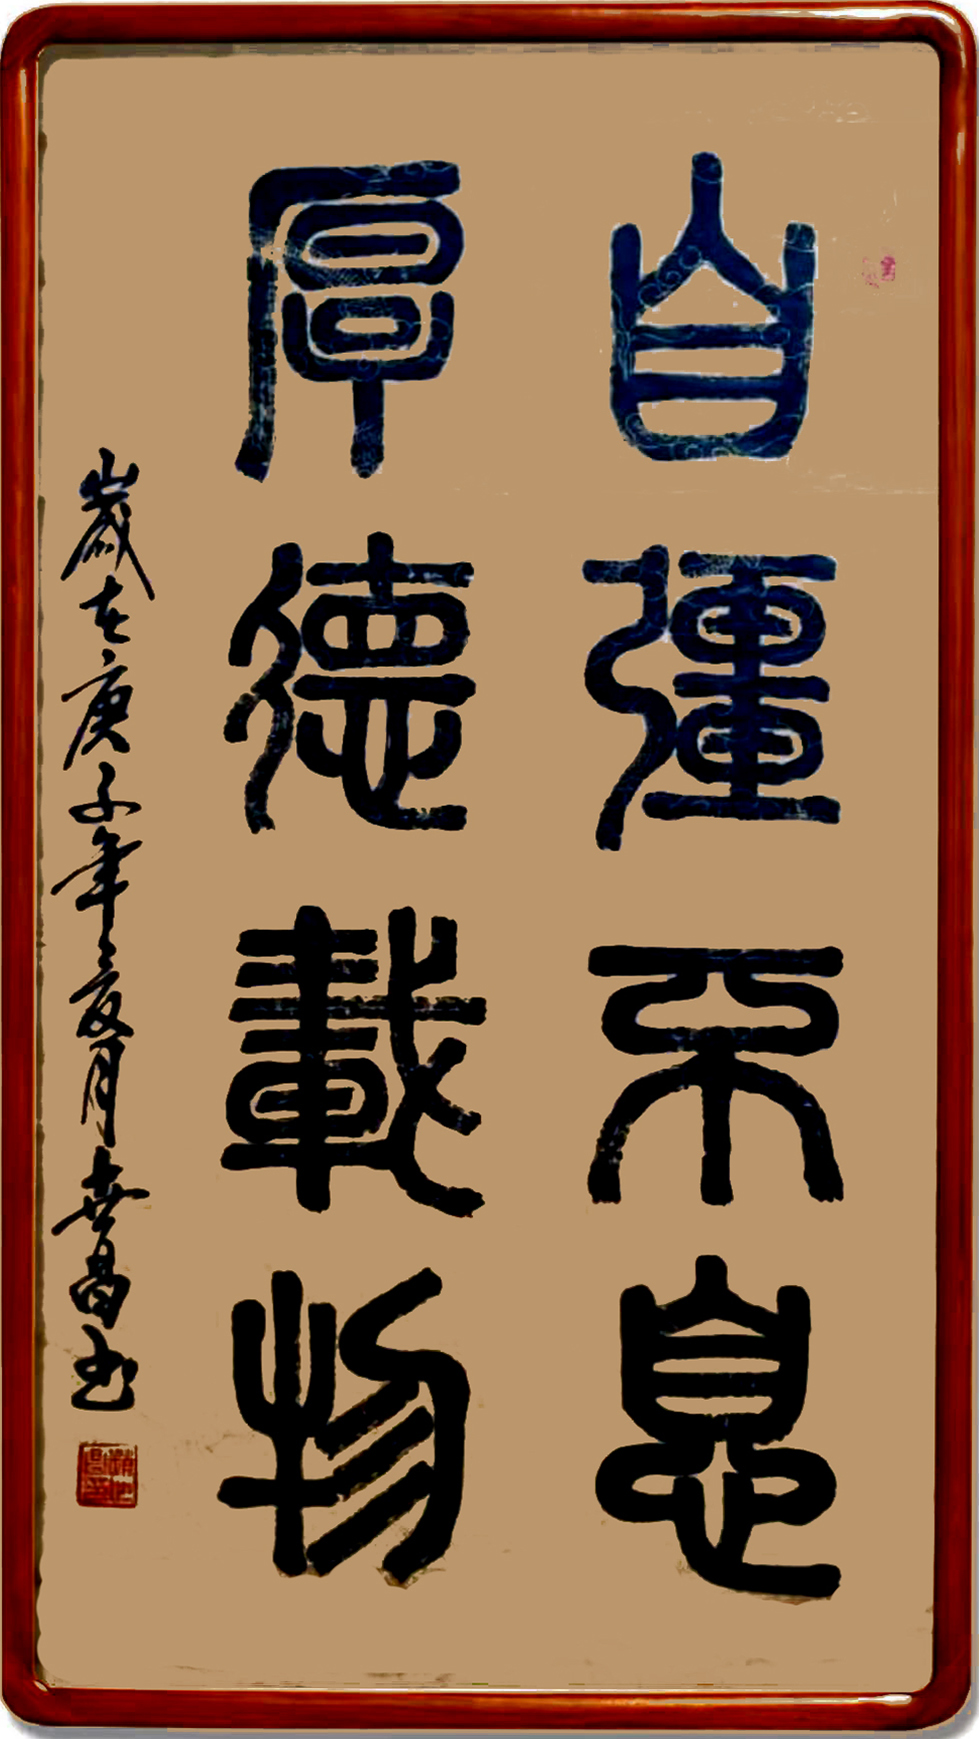 自彊不息
厚德載物
歲在庚子年夏月世昌书